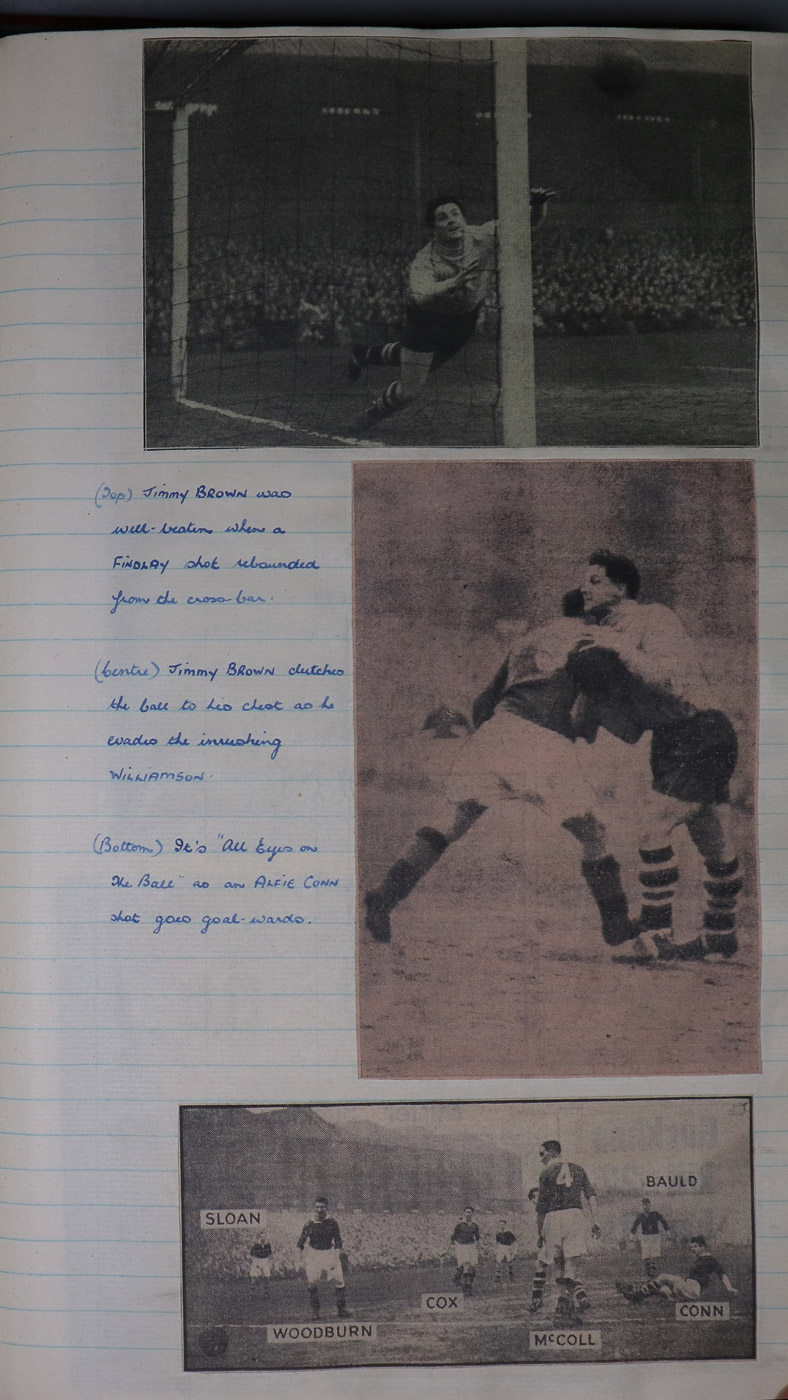 (Top) Jimmy BROWN was
well-beaten when a
FINDLAY shot rebounded
from the cross-bar.
(Centre) Jimmy BROWN clutches
the ball to his chest as he
evades the inrushing
WILLIAMSON.
(Bottom) It's "All Eyes on
the Ball" as an ALFIE CONN
shot goes goal-wards.
BAULD
SLOAN
4
COX
CONN
WOODBURN
McCOLL